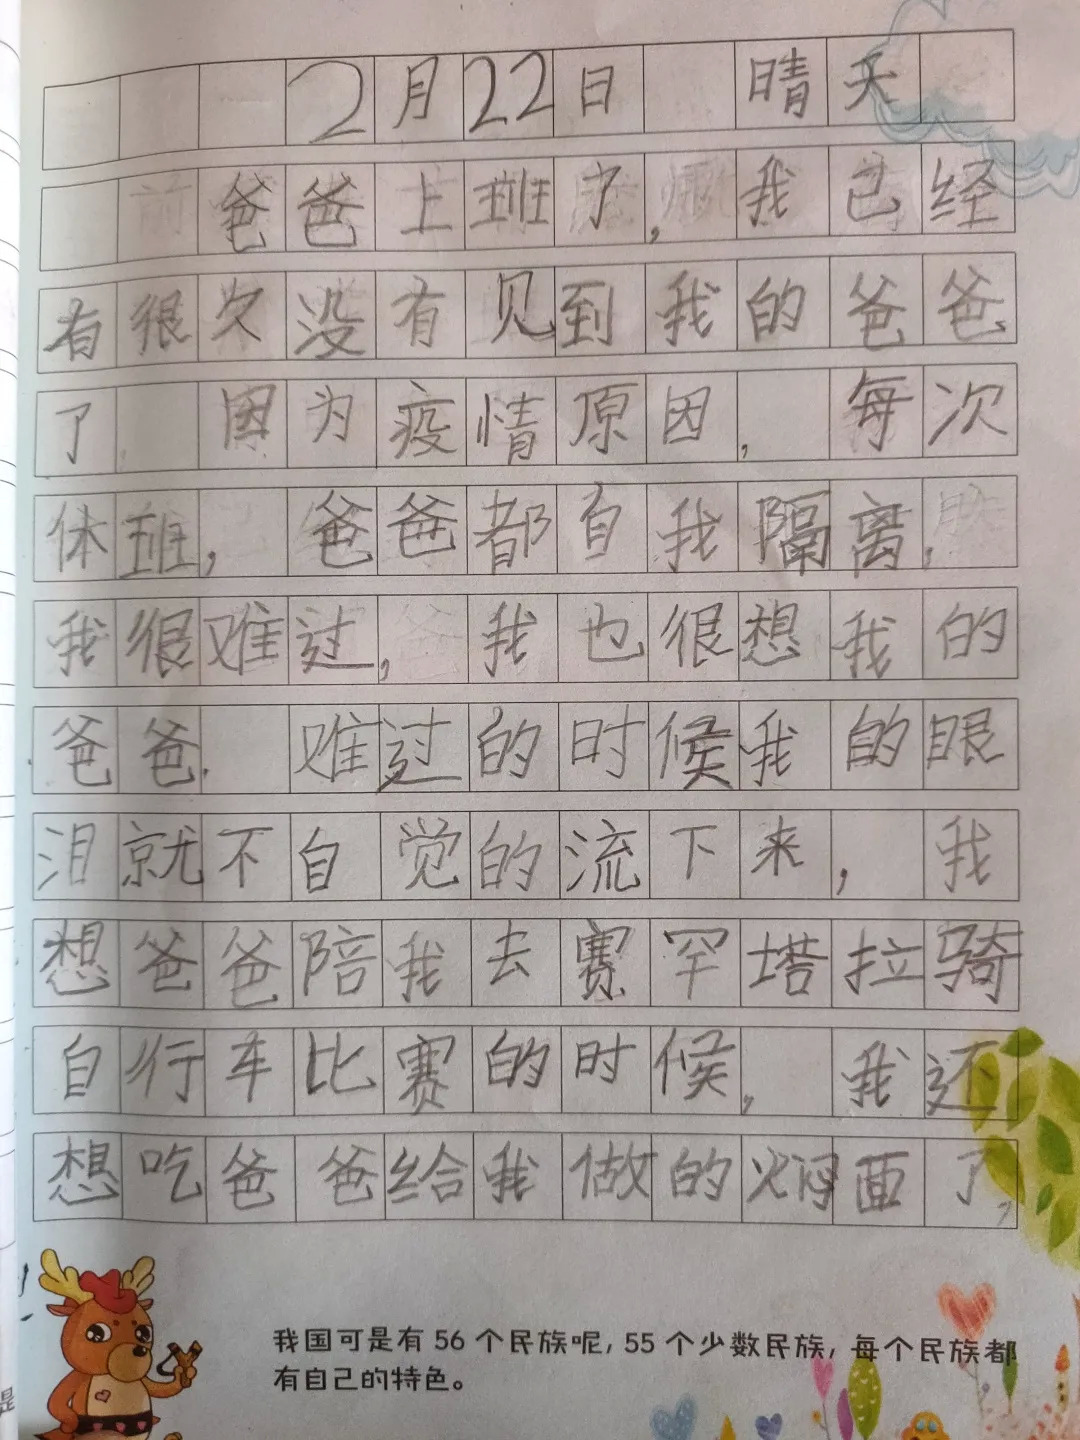 2月22日 晴天
爸爸上班了,我已经
有很久没有见到我的爸爸
了 因为疫情原因, 每次
休班, 爸爸都自我隔离,
我很难过, 我也很想我的
爸爸. 难过的时候我的眼
泪就不自觉的流下来, 我
想爸爸陪我去赛罕塔拉骑
自行车比赛的时候, 我还
想吃爸爸给我做的焖面了,
我国可是有 56 个民族呢, 55 个少数民族, 每个民族都
有自己的特色。